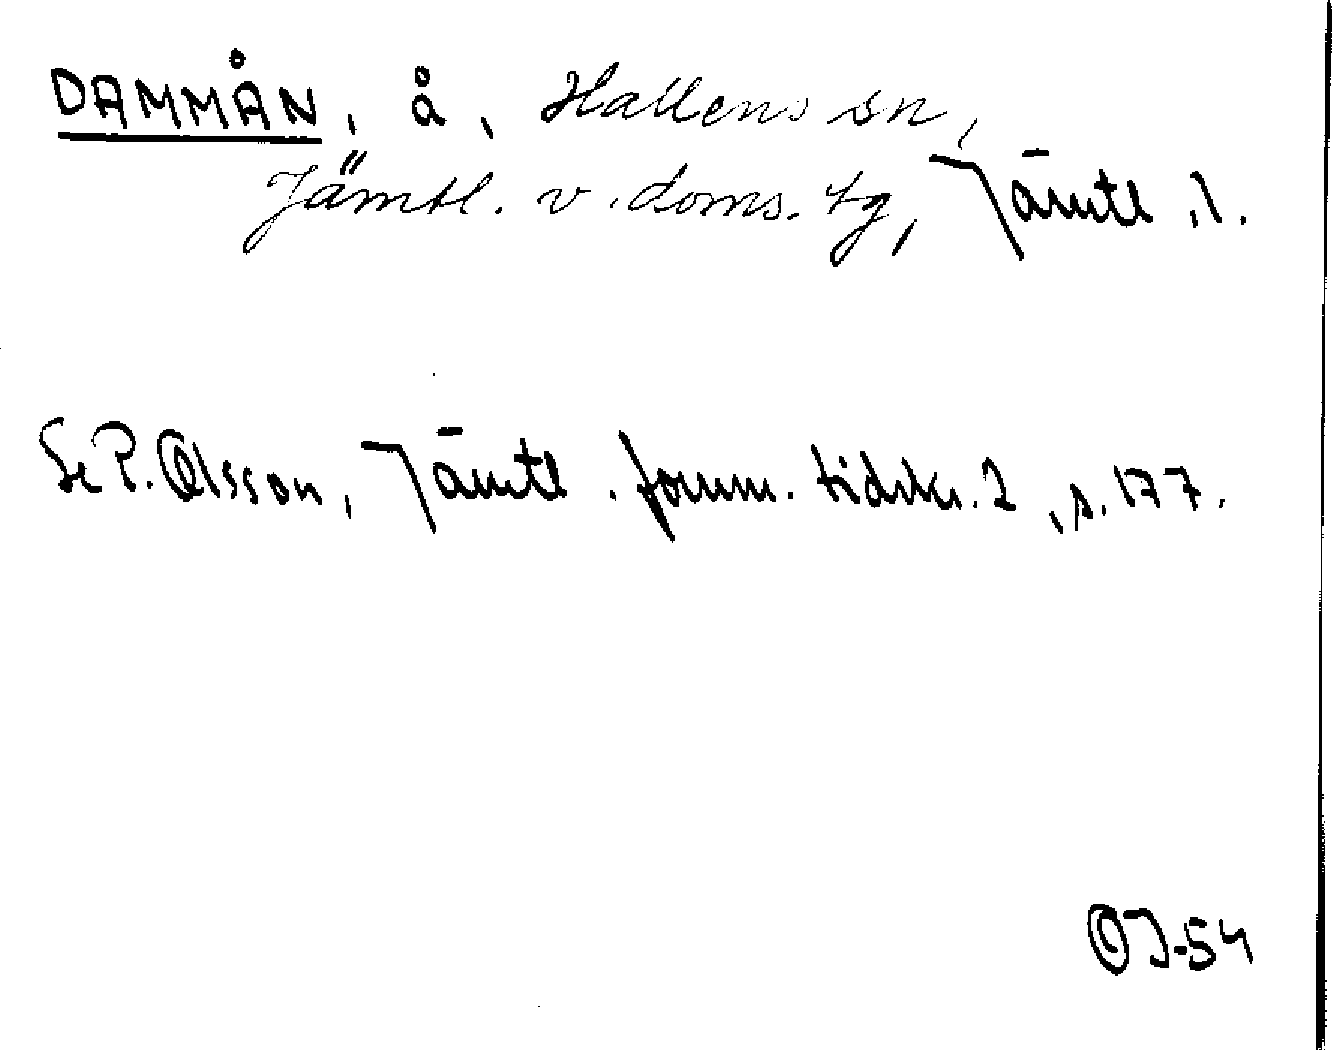 DAMMÅN, å, Hallens sn,
Jämtl. v. doms. tg, Jämtl. l.
Se P. Olsson, Jämtl. fornm. tidskr. 2, s. 177.
OJ-54